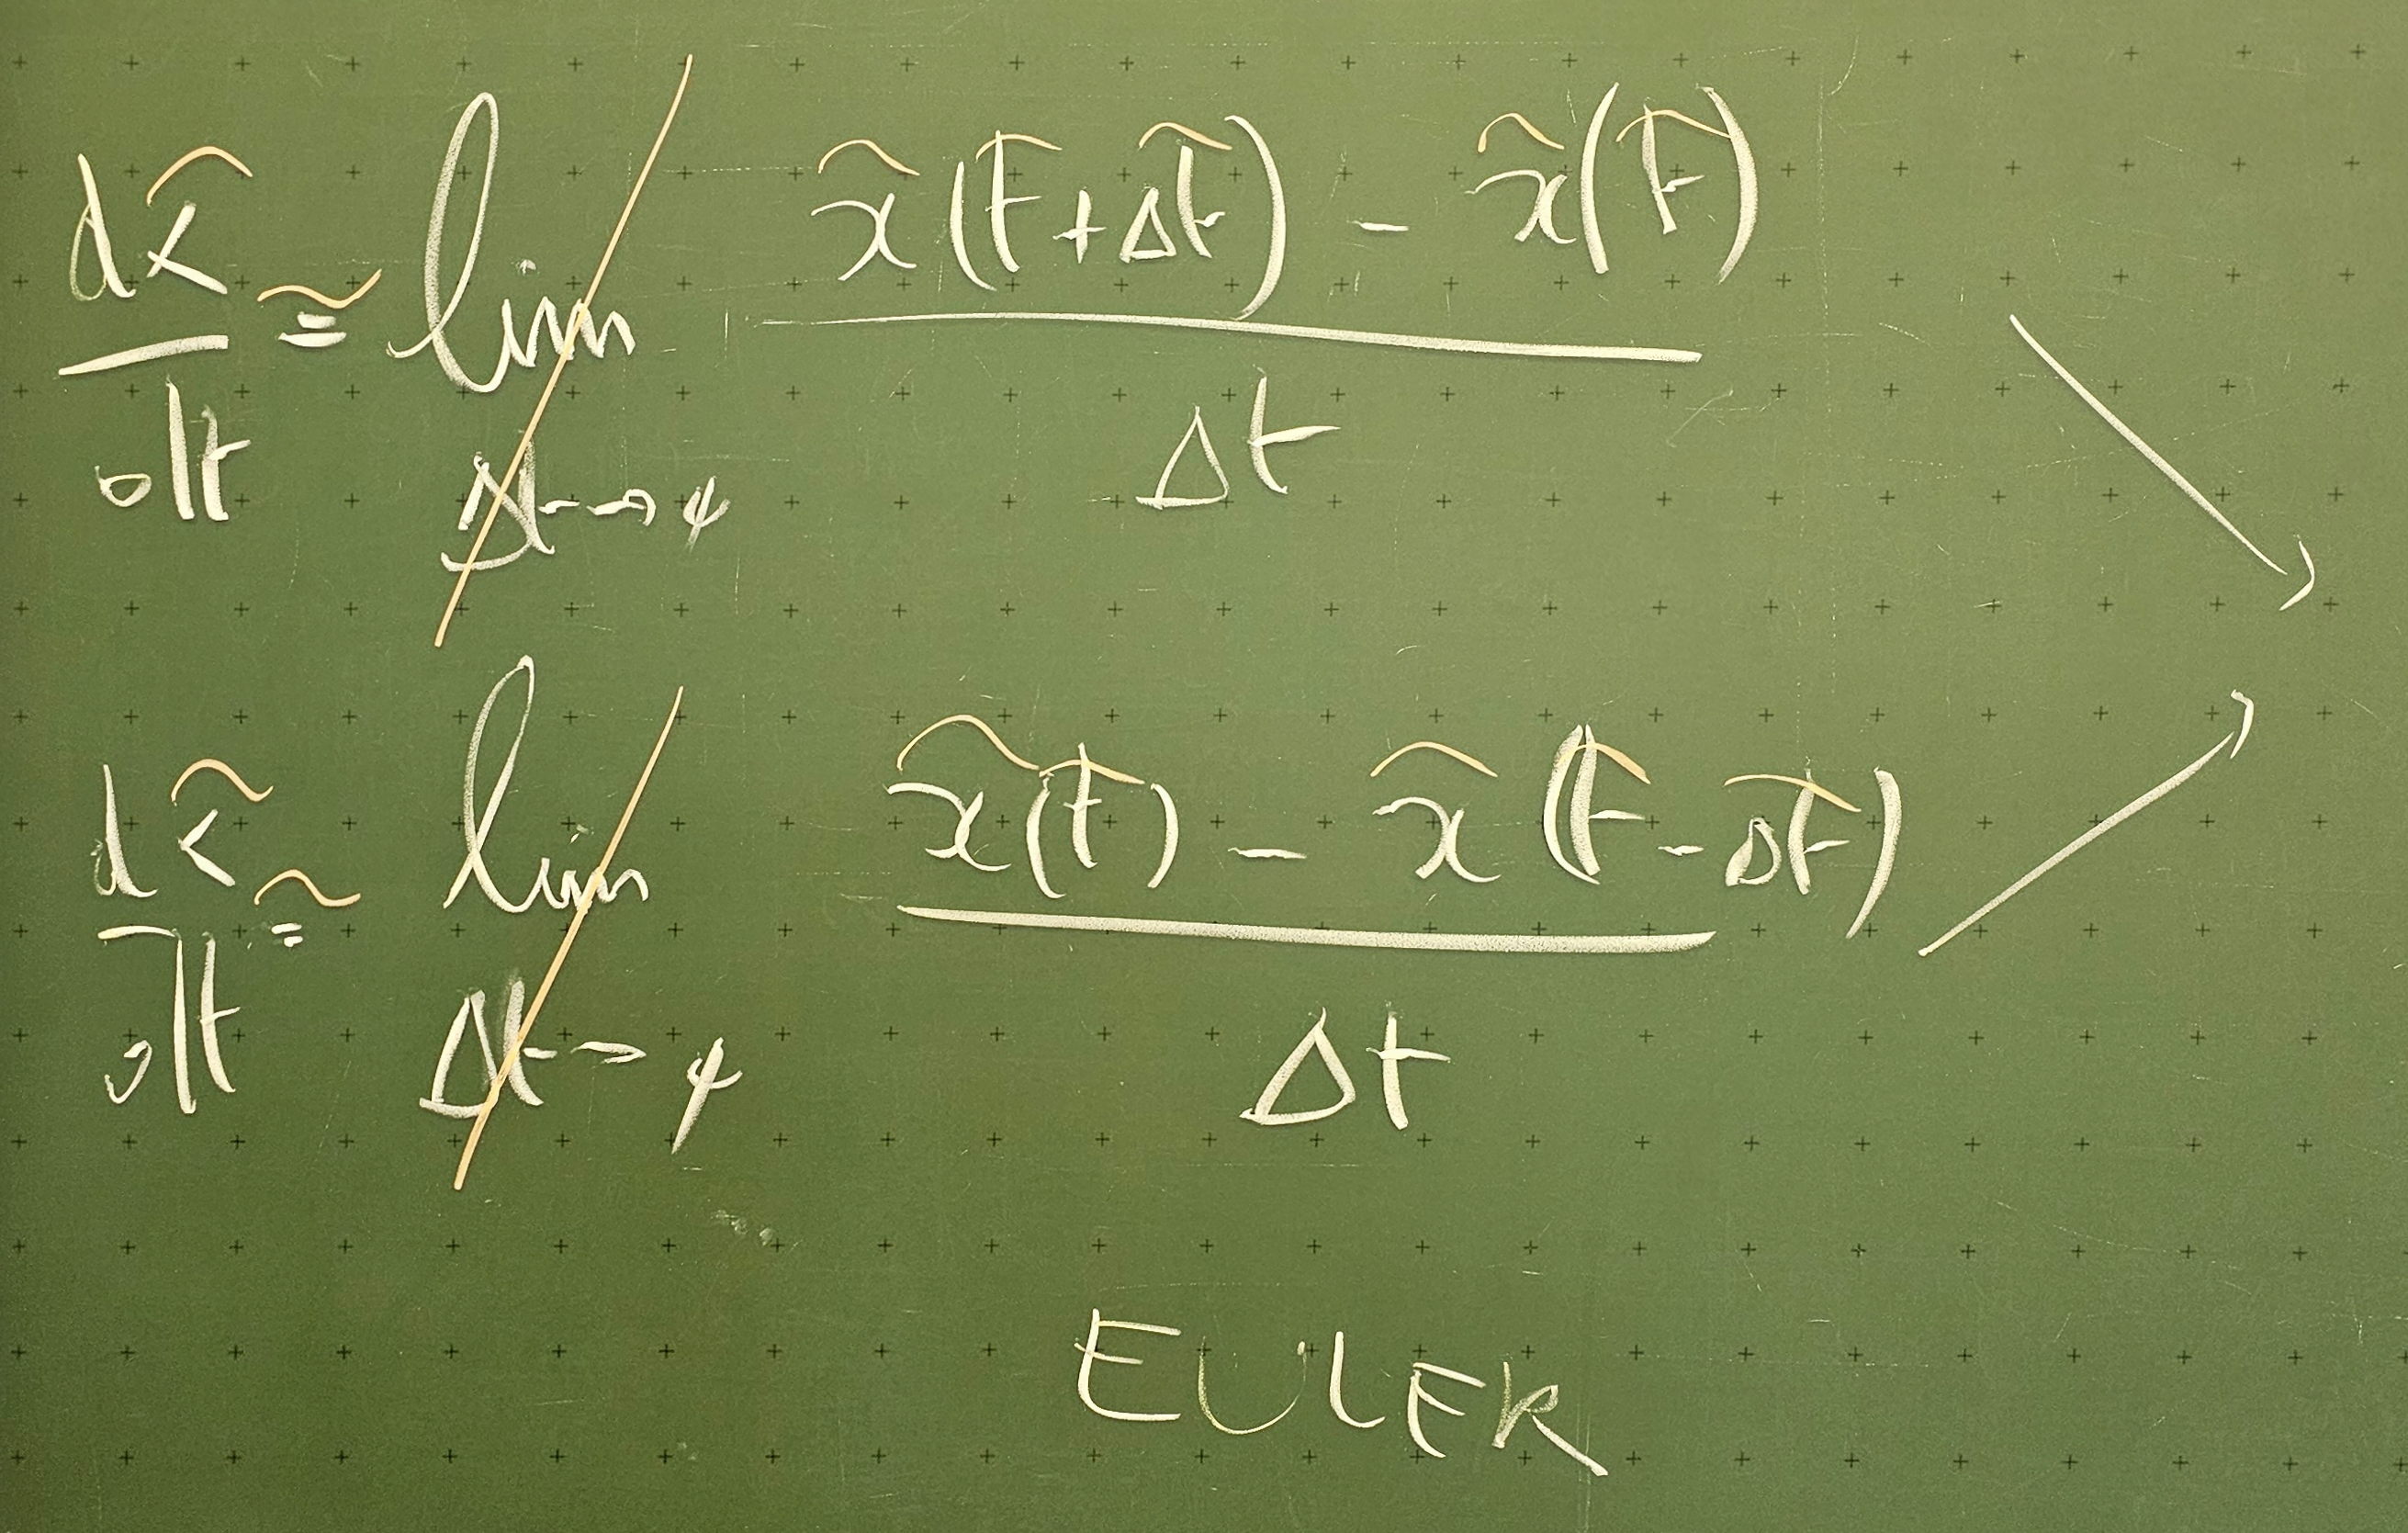 dx̃/dt ≅ lim Δt→0 (x̃(t̃+Δt̃) - x̃(t̃))/Δt
dx̃/dt ≅ lim Δt→0 (x̃(t̃) - x̃(t̃-Δt̃))/Δt
EULER